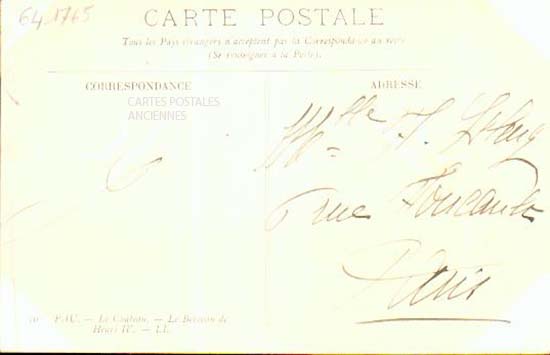 64-1765
CARTE POSTALE
Tous les Pays étrangers n'acceptent pas la Correspondance au recto
(Se renseigner à la Poste).
CORRESPONDANCE
ADRESSE
CARTES POSTALES
ANCIENNES
Mlle
rue
Paris
PAU. — Le Château. — Le Berceau de
Henri IV. — LL.